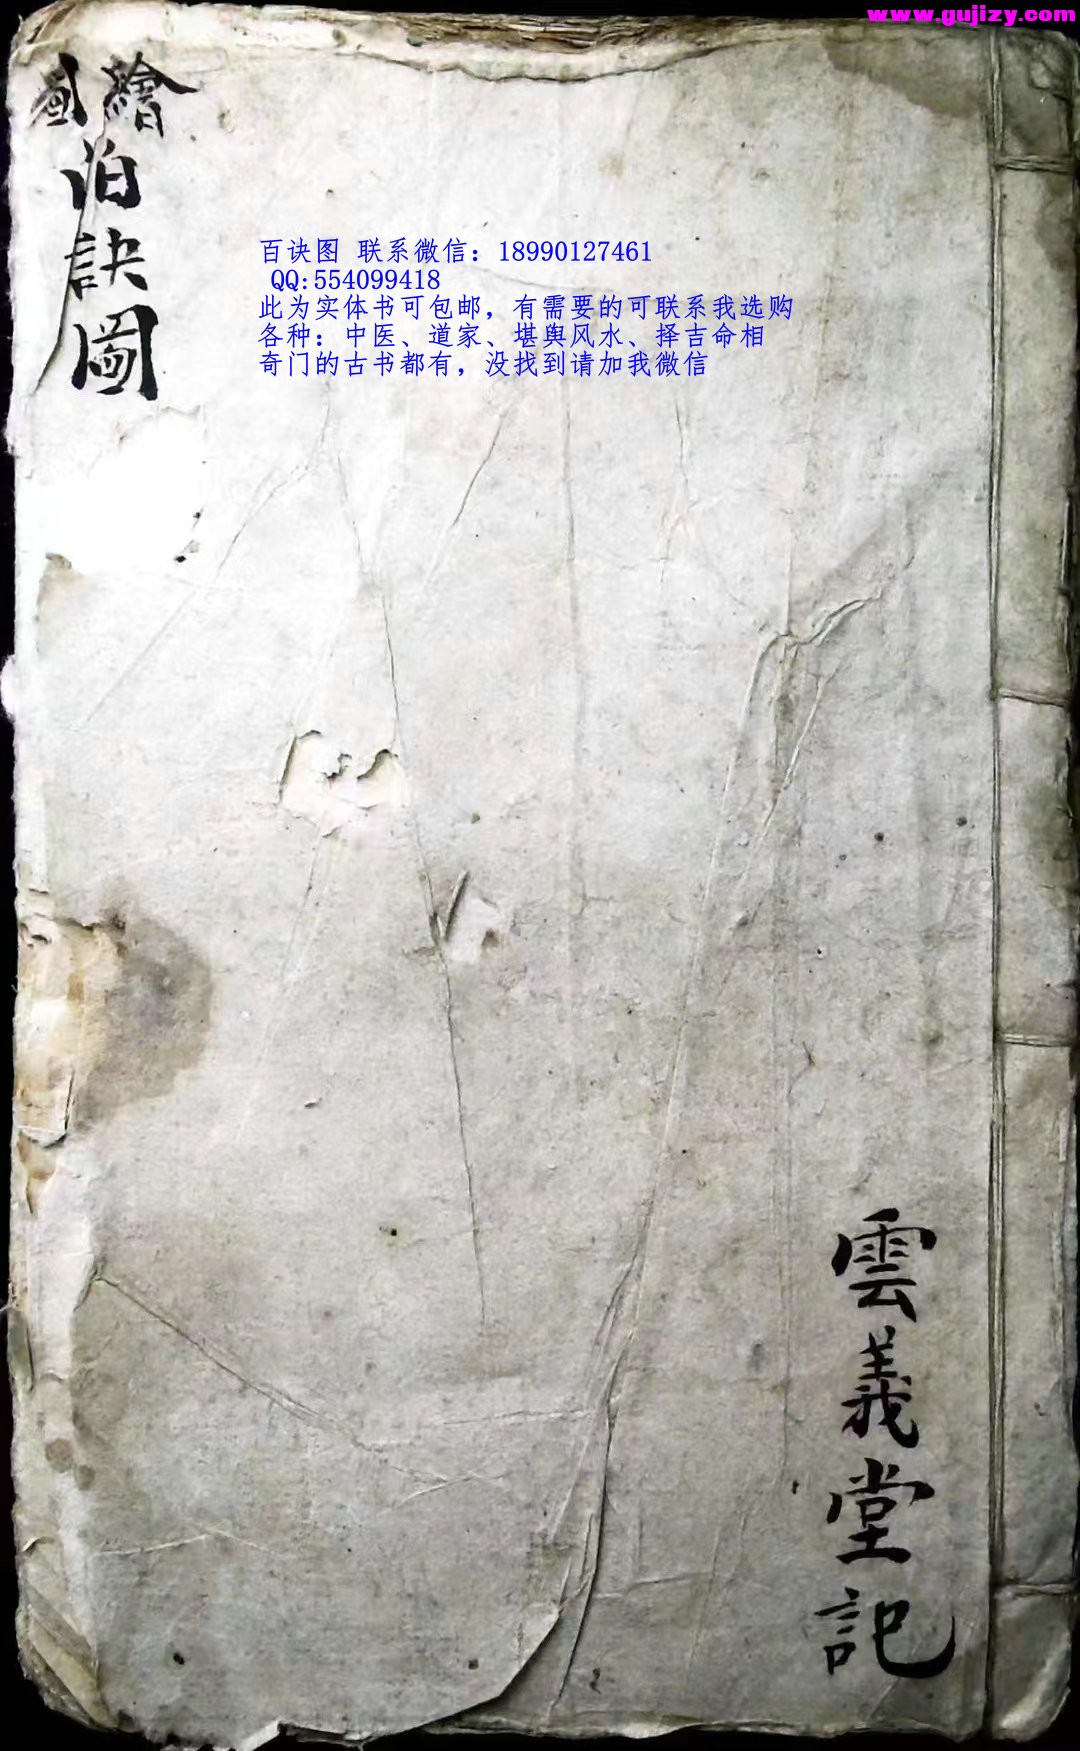 www.gujizy.com
繪圖
百訣圖
百诀图 联系微信：18990127461
QQ:554099418
此为实体书可包邮，有需要的可联系我选购
各种：中医、道家、堪舆风水、择吉命相
奇门的古书都有，没找到请加我微信
雲義堂記